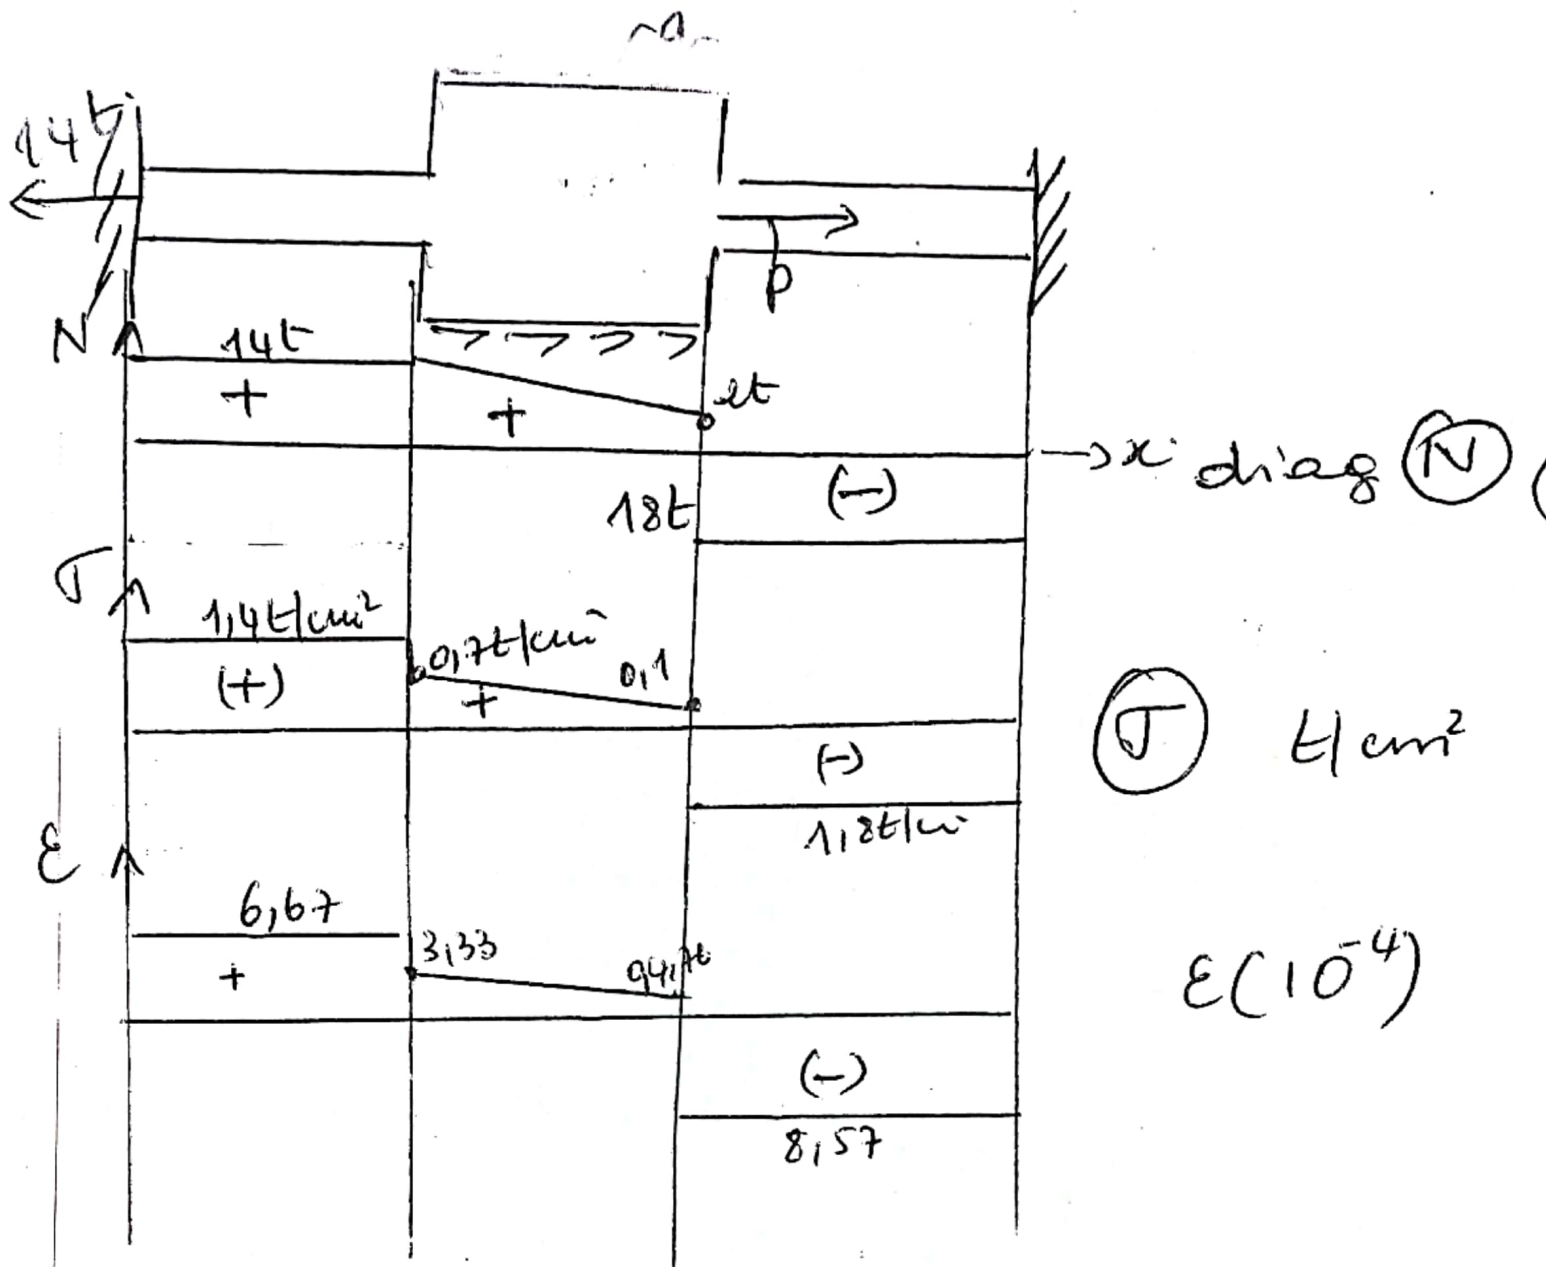 14t
P
N
14t
+
+
2t
→x diag (N) (
18t
(-)
σ
1,4t/cm²
0,7t/cm²
0,1
(+)
+
(σ) t/cm²
(-)
1,8t/cm²
ε
6,67
3,33
+
ε(10⁻⁴)
(-)
8,57